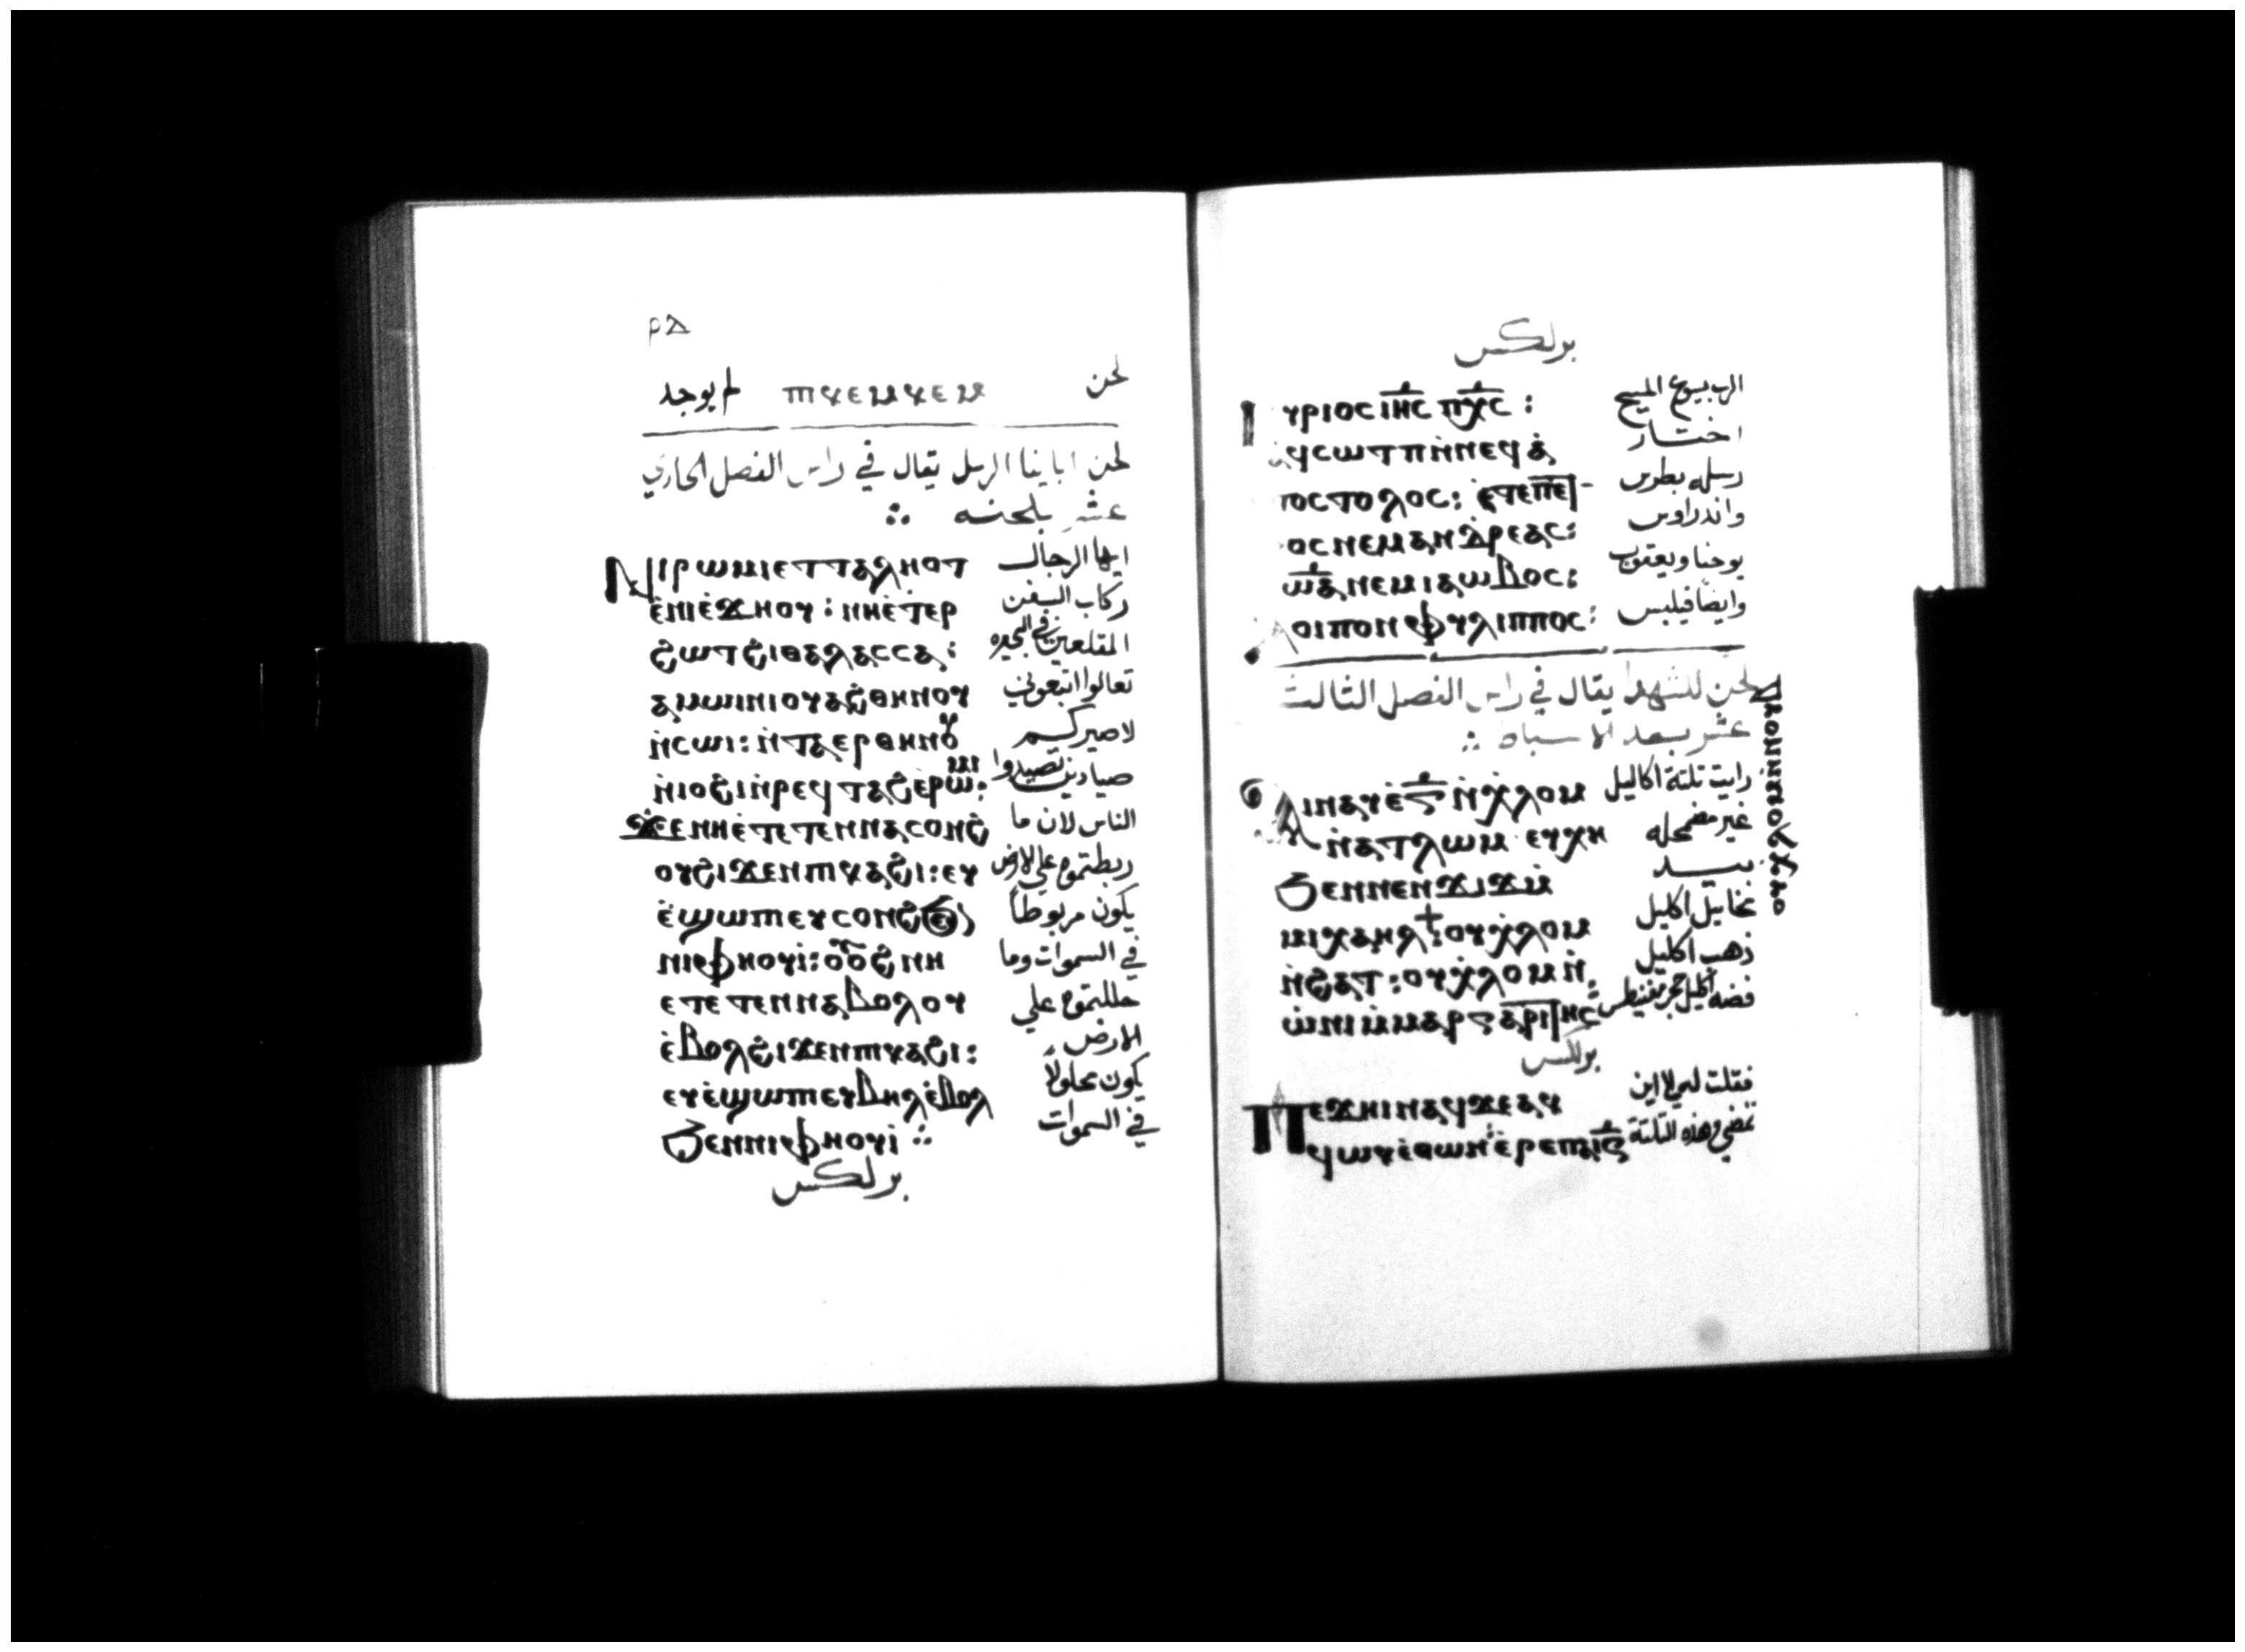 ⲣⲇ
ⲡⲓⲉⲙⲓⲉⲙ لحن
لم يوجد
لحن ابائنا الرسل يقال في راس الفصل الحادي
عشر بلحنه ∴
Ⲛⲓⲣⲱⲙⲓⲉⲧⲧⲁⲗⲏⲟⲧ ايها الرجال
ⲉ̀ⲛⲓⲉ̀ϫⲏⲟⲩ: ⲛⲏⲉ̀ⲧⲉⲣ ركاب السفن
ϩⲱⲧϩⲓⲑⲁⲗⲁⲥⲥⲁ: المقلعين في البحيره
ⲁⲙⲱⲓⲛⲓⲟⲩⲁϩⲑⲏⲛⲟⲩ تعالوا اتبعوني
ⲛ̀ⲥⲱⲓ: ⲛ̀ⲧⲁⲉⲣⲑⲏⲛⲟⲩ لاصيركم
ⲛ̀ⲓⲟϩⲓⲛ̀ⲣⲉϥⲧⲁϩⲉ̀ⲣⲱⲙⲓ: صيادين تصيدوا
ϫⲉⲉⲛⲏⲉ̀ⲧⲉⲧⲉⲛⲛⲁⲥⲟⲛϩ الناس لان ما
ⲟⲩϩⲓϫⲉⲛⲡⲓⲕⲁϩⲓ: ⲉⲩ ربطتموه علي الارض
ⲉ̀ϣⲱⲡⲓⲉⲩⲥⲟⲛϩϧⲉⲛ يكون مربوطاً
ⲛⲓⲫⲏⲟⲩⲓ̀: ⲟⲩⲟϩ ⲛⲏ في السموات وما
ⲉⲧⲉⲧⲉⲛⲛⲁⲃⲟⲗⲟⲩ حللتموه علي
ⲉ̀ⲃⲟⲗϩⲓϫⲉⲛⲡⲓⲕⲁϩⲓ: الارض
ⲉⲩⲉ̀ϣⲱⲡⲓⲉⲩⲃⲏⲗⲉ̀ⲃⲟⲗ يكون محلولاً
ϧⲉⲛⲛⲓⲫⲏⲟⲩⲓ̀ ∴ في السموات
برلكس
برلكس
ⲩⲣⲓⲟⲥ ⲓⲏⲥ ⲡⲭⲥ: الرب يسوع المسيح
ϥⲥⲱⲧⲡⲛ̀ⲛⲉϥⲁ̀ اختار
ⲡⲟⲥⲧⲟⲗⲟⲥ: ⲉ̀ⲧⲉⲡⲉⲧ- رسله بطرس
ⲟⲥⲛⲉⲙⲁⲛⲇⲣⲉⲁⲥ: واندراوس
ⲓⲱⲁ ⲛⲉⲙⲓⲁⲕⲱⲃⲟⲥ: يوحنا ويعقوب
ⲗⲟⲓⲡⲟⲛ ⲫⲩⲗⲓⲡⲡⲟⲥ: وايضاً فيلبس
لحن للشهدا يقال في راس الفصل الثالث
عشر بعد الاسباط ∴
ⲁⲓⲛⲁⲩⲉ̀ⲅ ⲛ̀ⲭ̀ⲗⲟⲙ رايت تلتة اكاليل
ⲛ̀ⲁⲧⲗⲱⲙ ⲉⲩⲭⲏ غير مضمحله
ϧⲉⲛⲛⲉⲛϫⲓϫⲙ̀ بيد
ⲙⲓⲭⲁⲏⲗ: ⲟⲩⲭ̀ⲗⲟⲙ مخاييل اكليل
ⲛ̀ϩⲁⲧ: ⲟⲩⲭ̀ⲗⲟⲙⲛ̀ ذهب اكليل
ⲱⲛⲓⲙ̀ⲙⲁⲣⲅⲁⲣⲓⲧⲏⲥ
برلكس
Ⲡⲉϫⲏⲓⲛⲁϥϫⲉⲁⲕ فقلت له الي اين
ϥⲱⲕⲉ̀ⲑⲱⲛ ⲉ̀ⲣⲉⲡⲁⲓⲅ تمضي وهذه التلتة